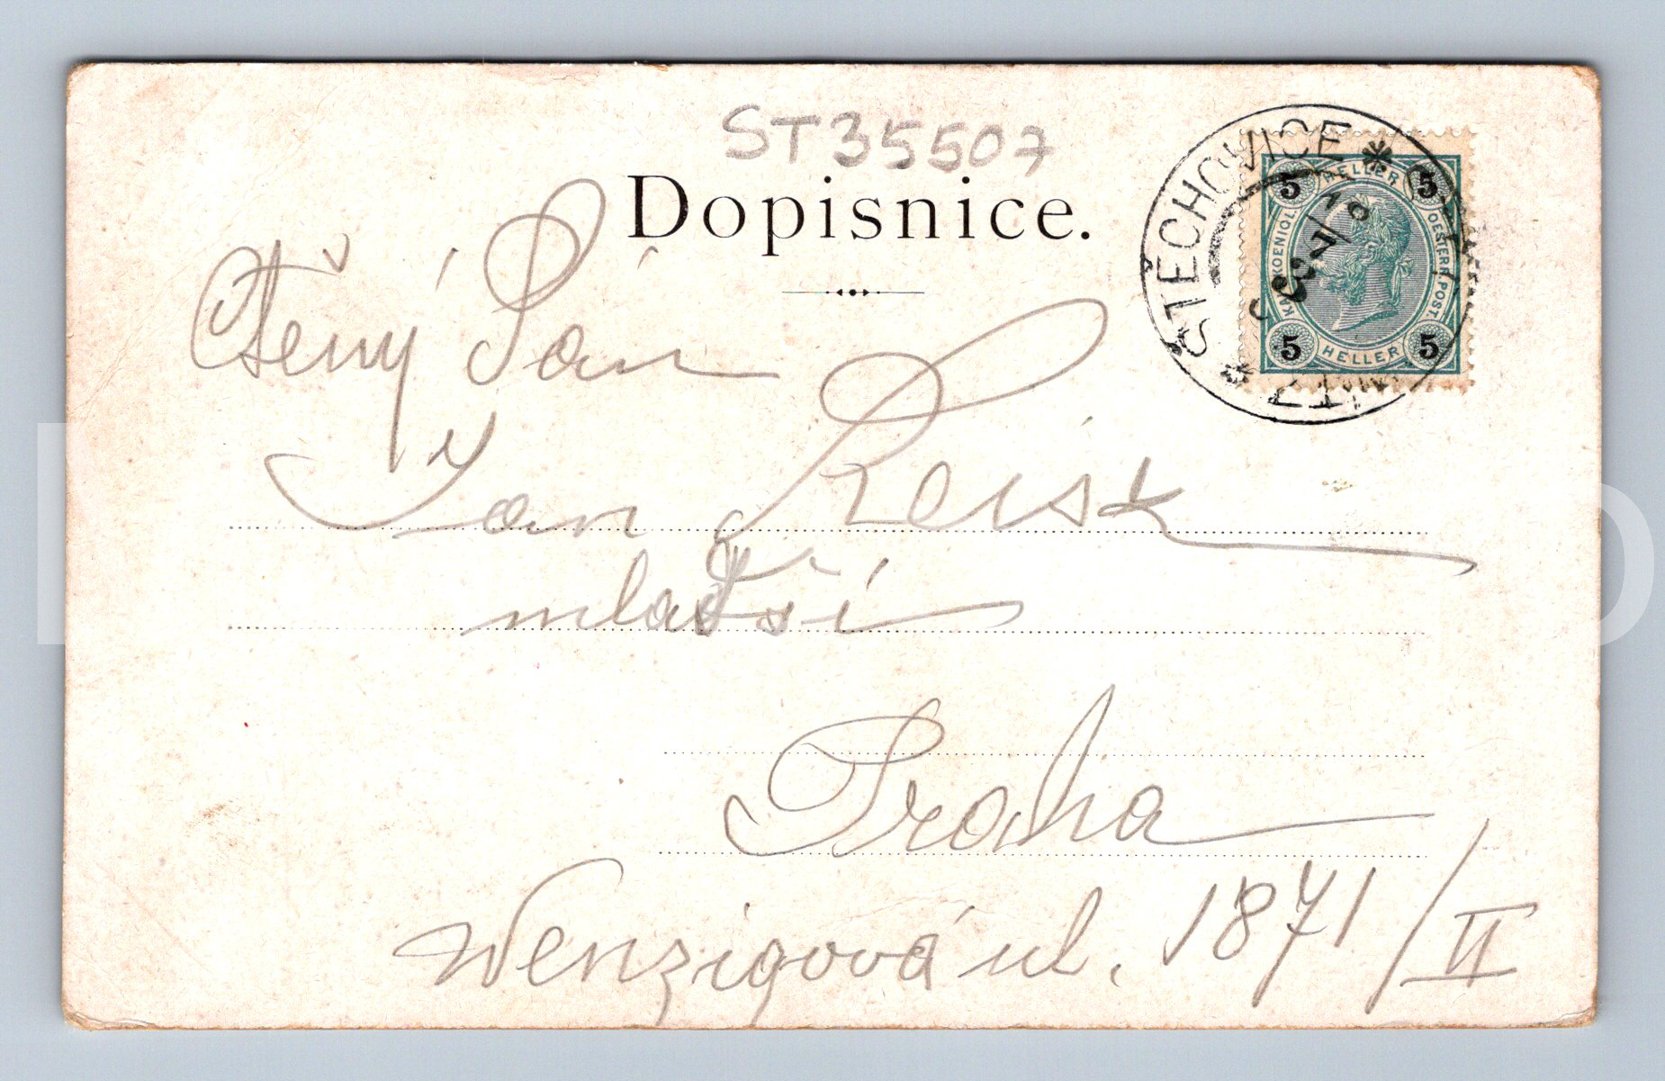 ST35507
Dopisnice.
STECHOVICE
5 HELLER 5
OESTERR. POST
5 HELLER 5
Ctěný Pán
Jan Reisk
mladší
Praha
Wenzigová ul. 1871/II